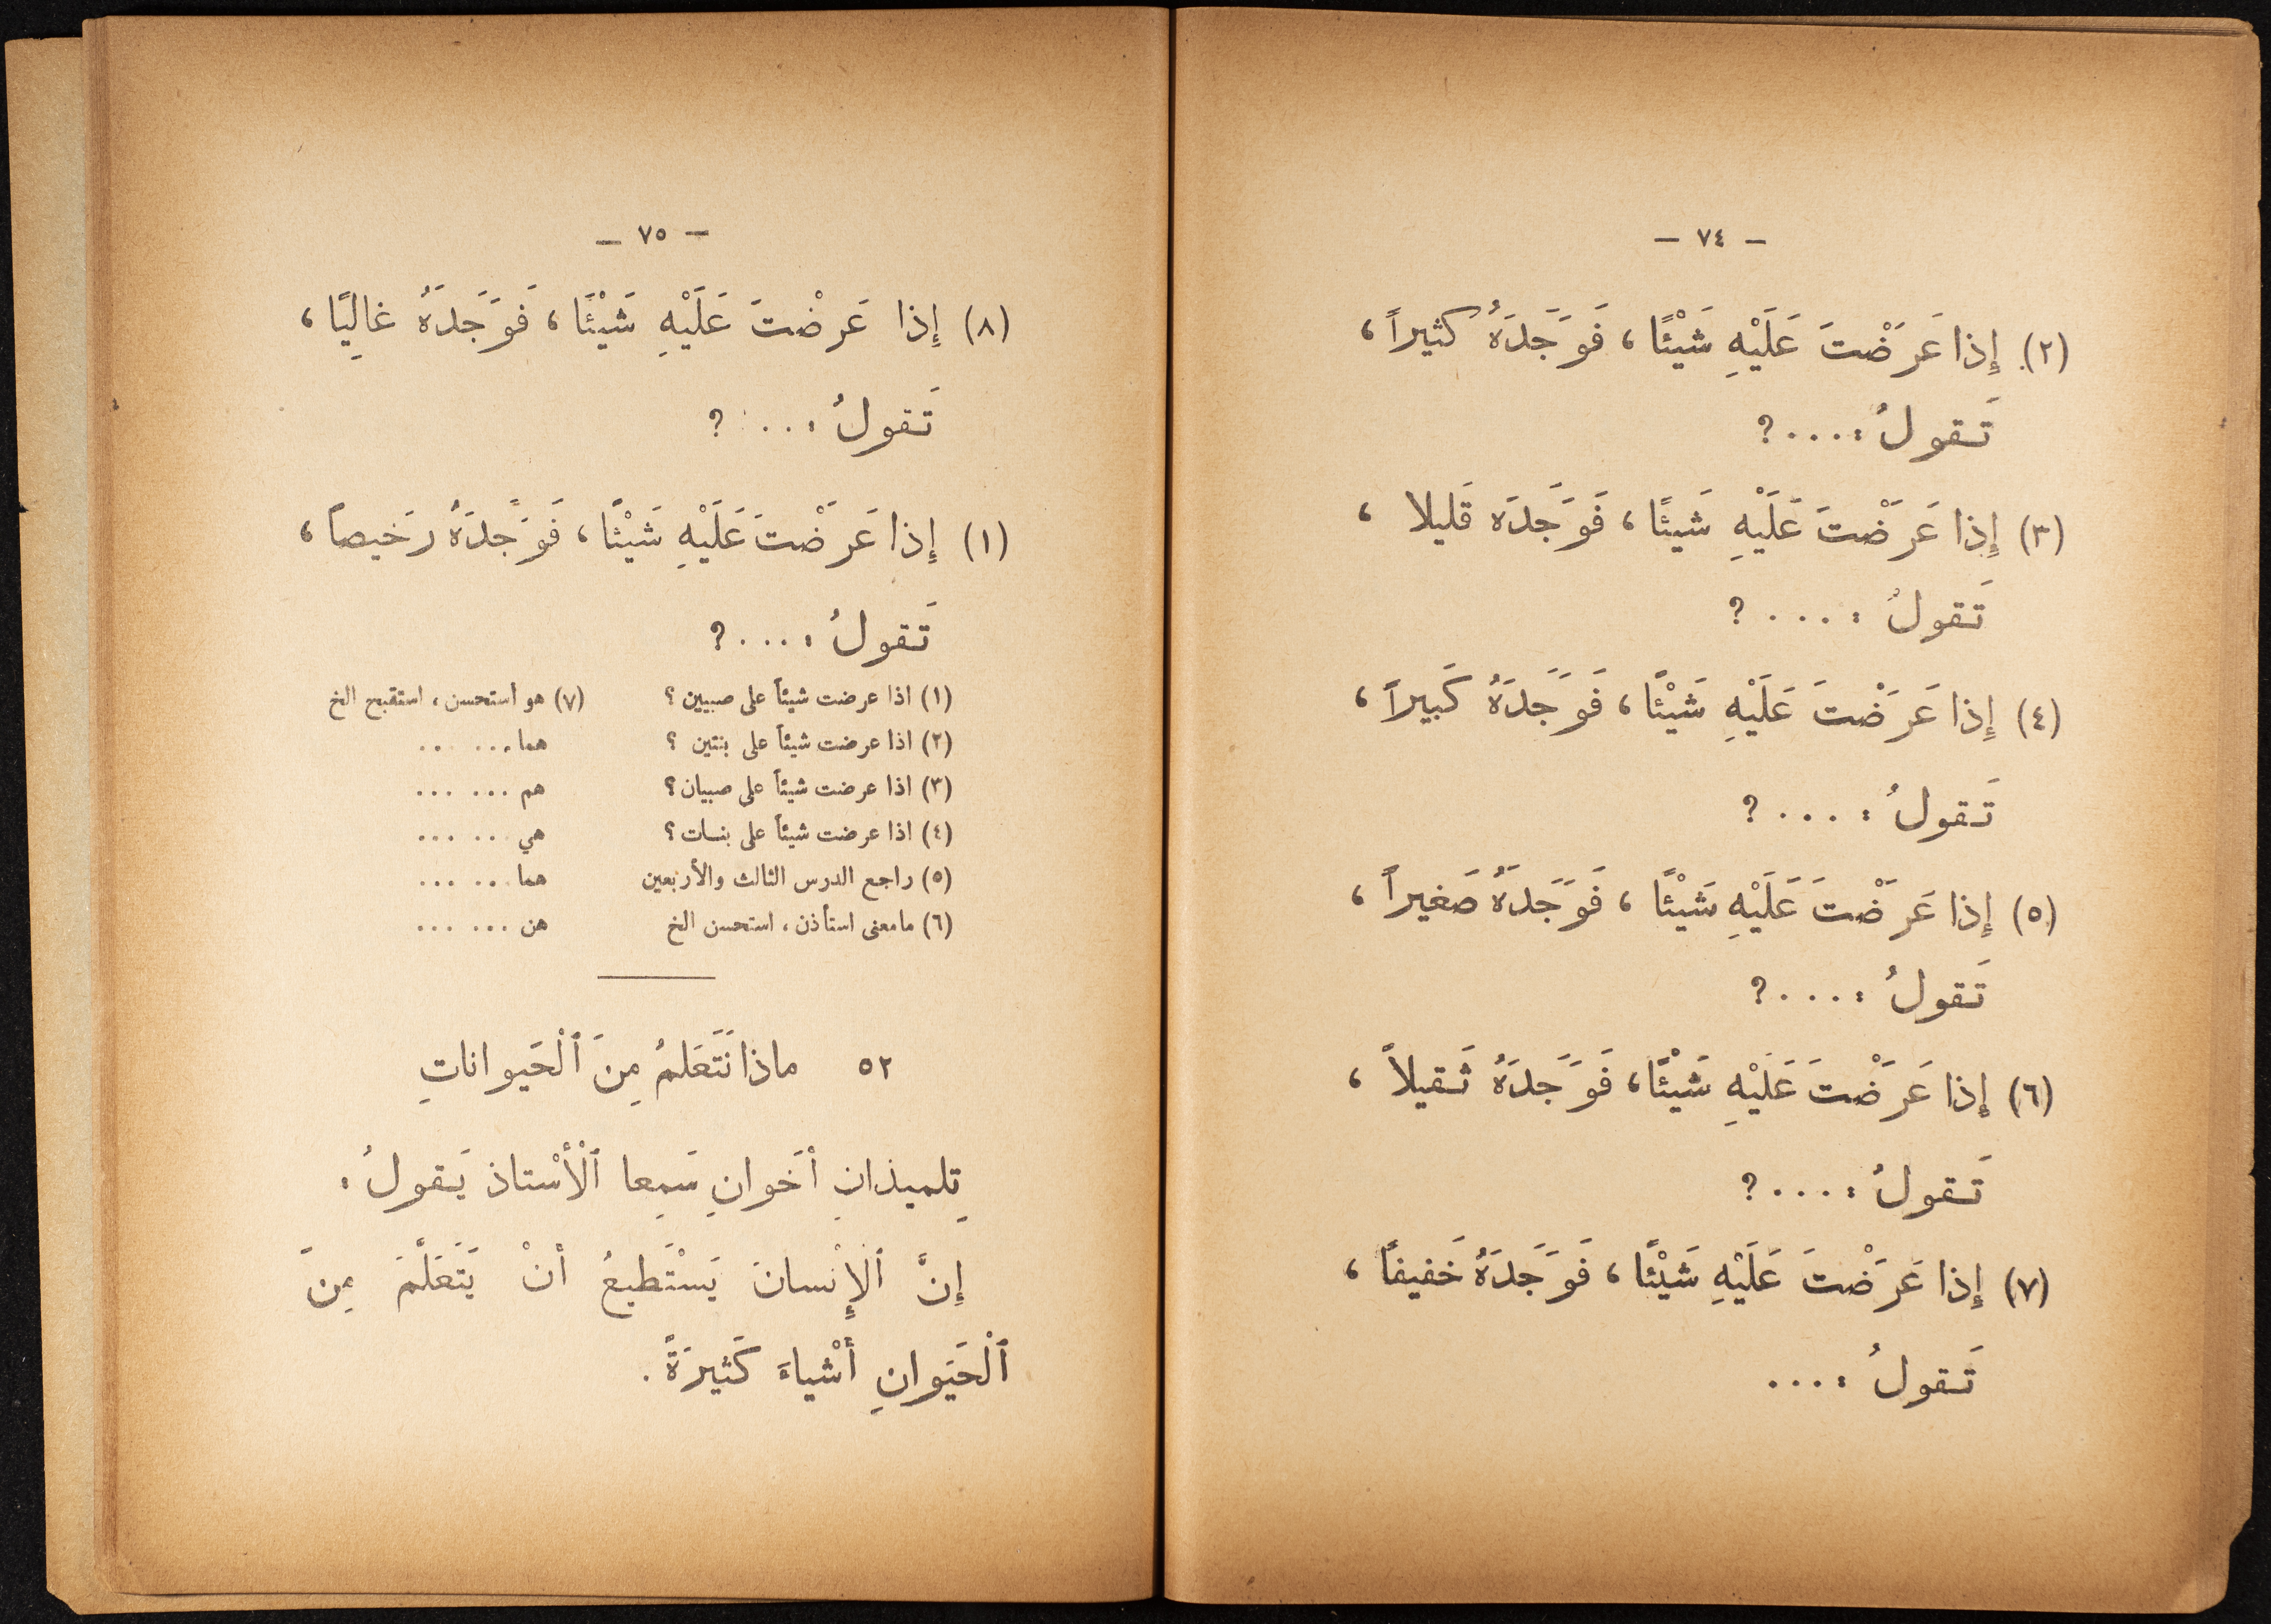 — ٧٤ —
(٢) إِذا عَرَضْتَ عَلَيْهِ شَيْئًا ، فَوَجَدَهُ كثيراً ،
تَقولُ : .... ?
(٣) إِذا عَرَضْتَ عَلَيْهِ شَيئًا ، فَوَجَدَه قَليلا ،
تَقولُ : .... ?
(٤) إِذا عَرَضْتَ عَلَيْهِ شَيْئًا ، فَوَجَدَهُ كَبيراً ،
تَقولُ : .... ?
(٥) إِذا عَرَضْتَ عَلَيْهِ شَيْئًا ، فَوَجَدَهُ صَغيراً ،
تَقولُ : .... ?
(٦) إِذا عَرَضْتَ عَلَيْهِ شَيْئًا ، فَوَجَدَهُ ثَقيلاً ،
تَقولُ : .... ?
(٧) إِذا عَرَضْتَ عَلَيْهِ شَيْئًا ، فَوَجَدَهُ خَفيفاً ،
تَقولُ : ....
— ٧٥ —
(٨) إِذا عَرضْتَ عَلَيْهِ شَيْئًا ، فَوَجَدَهُ غالِيًا ،
تَقولُ : ... ?
(١) إِذا عَرَضْتَ عَلَيْهِ شَيْئًا ، فَوَجَدَهُ رَخيصاً ،
تَقولُ : .... ?
(١) اذا عرضت شيئاً على صبيين ؟
(٢) اذا عرضت شيئاً على بنتين ؟
(٣) اذا عرضت شيئاً على صبيان ؟
(٤) اذا عرضت شيئاً على بنات ؟
(٥) راجع الدرس الثالث والأربعين
(٦) مامعنى استأذن ، استحسن الخ
(٧) هو استحسن ، استقبح الخ
هما ... ...
هم ... ...
هي ... ...
هما ... ...
هن ... ...
٥٢ ماذا نَتَعَلمُ مِنَ ٱلْحَيوانات
تِلميذانِ أخَوانِ سَمِعا ٱلْأُسْتاذ يَقولُ :
إِنَّ ٱلْإِنْسانَ يَسْتَطيعُ أنْ يَتَعَلَّمَ مِنَ
ٱلْحَيَوانِ أَشْياءَ كَثيرَةً .